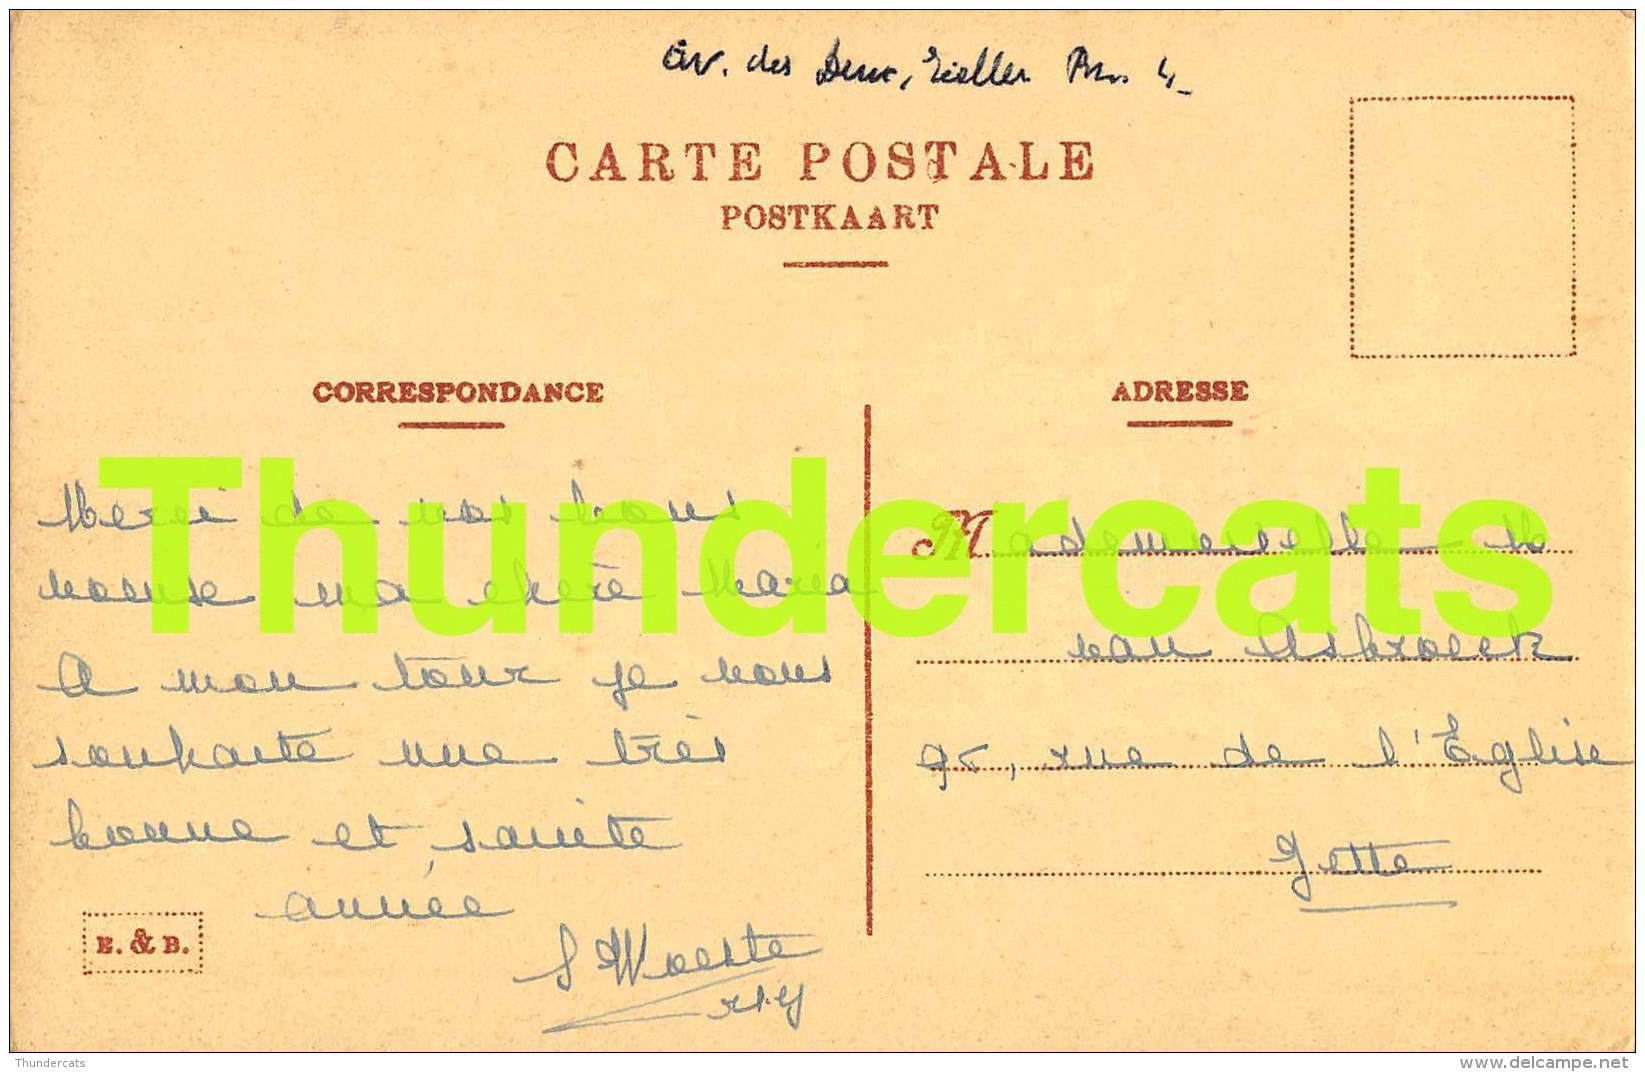 av. des Deux, 4
CARTE POSTALE
POSTKAART
CORRESPONDANCE
Merci de vos bons
voeux ma chère Maria
A mon tour je vous
souhaite une très
bonne et sainte
année
Woeste
E. & B.
ADRESSE
Mademoiselle M
van Asbroeck
95, rue de l'Eglise
Jette
Thundercats
Thundercats
delcampe.net